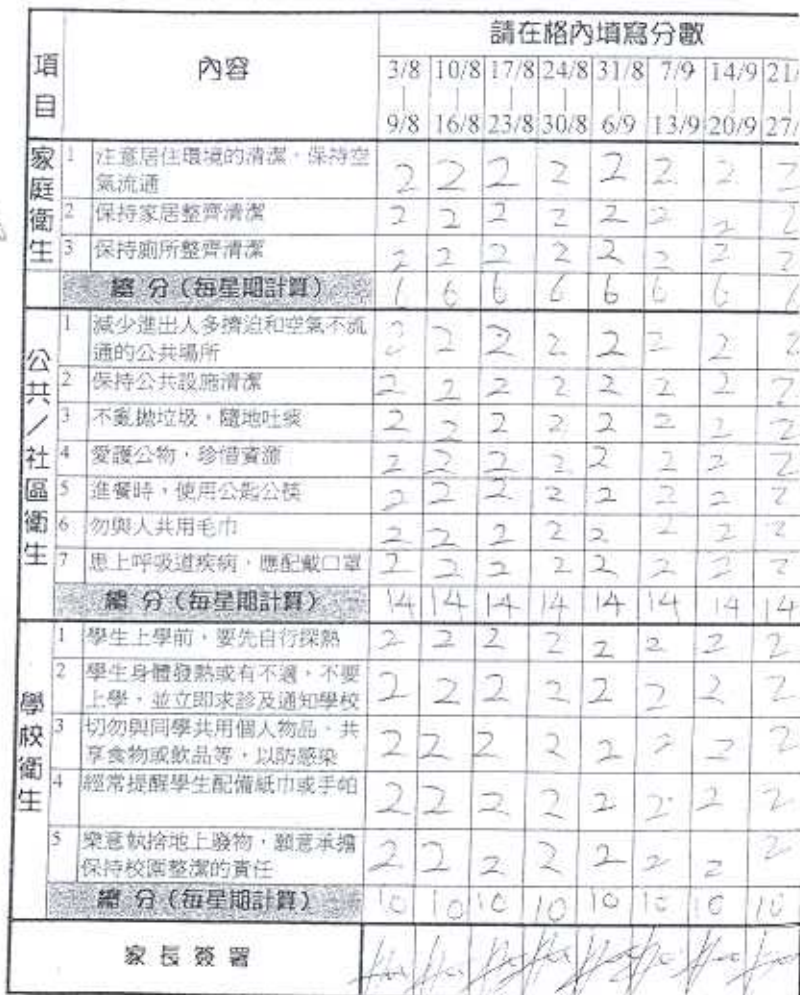 項目 內容 請在格內填寫分數
3/8 10/8 17/8 24/8 31/8 7/9 14/9 21/
| | | | | | | |
9/8 16/8 23/8 30/8 6/9 13/9 20/9 27/
家庭衞生
1 注意居住環境的清潔，保持空
氣流通 2 2 2 2 2 2 2 2
2 保持家居整齊清潔 2 2 2 2 2 2 2 2
3 保持廁所整齊清潔 2 2 2 2 2 2 2 2
總 分（每星期計算） 6 6 6 6 6 6 6
公共／社區衞生
1 減少進出人多擠迫和空氣不流
通的公共場所 2 2 2 2 2 2 2 2
2 保持公共設施清潔 2 2 2 2 2 2 2 2
3 不亂拋垃圾，隨地吐痰 2 2 2 2 2 2 2 2
4 愛護公物，珍惜資源 2 2 2 2 2 2 2 2
5 進餐時，使用公匙公筷 2 2 2 2 2 2 2 2
6 勿與人共用毛巾 2 2 2 2 2 2 2 2
7 患上呼吸道疾病，應配戴口罩 2 2 2 2 2 2 2 2
總 分（每星期計算） 14 14 14 14 14 14 14 14
學校衞生
1 學生上學前，要先自行探熱 2 2 2 2 2 2 2 2
2 學生身體發熱或有不適，不要
上學，並立即求診及通知學校 2 2 2 2 2 2 2 2
3 切勿與同學共用個人物品、共
享食物或飲品等，以防感染 2 2 2 2 2 2 2 2
4 經常提醒學生配備紙巾或手帕 2 2 2 2 2 2 2 2
5 樂意執拾地上廢物，願意承擔
保持校園整潔的責任 2 2 2 2 2 2 2 2
總 分（每星期計算） 10 10 10 10 10 10 10 10
家長簽署